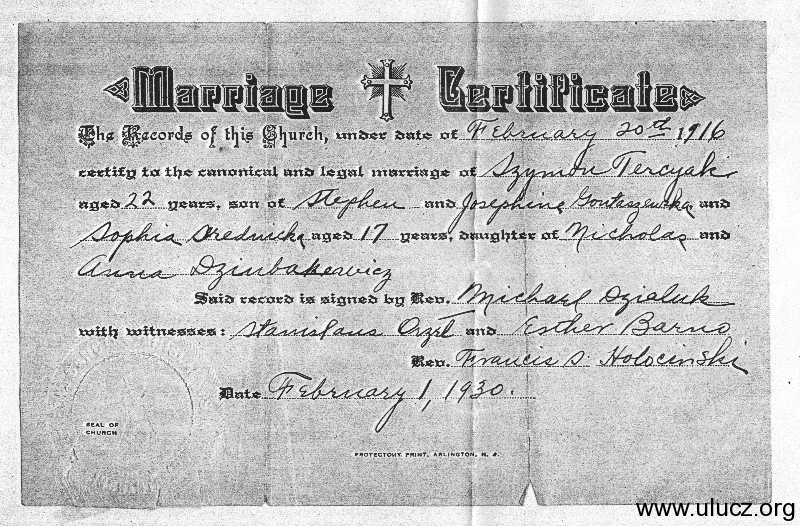 Marriage Certificate
The Records of this Church, under date of February 20th 1916
certify to the canonical and legal marriage of Szymon Tercyak
aged 22 years, son of Stephen and Josephine Gontaszewska and
Sophia Srednicka aged 17 years, daughter of Nicholas and
Anna Dziubakewicz
Said record is signed by Rev. Michael Dzialuk
with witnesses: Stanislaus Orzel and Esther Barno
Rev. Francis S. Holocinski
Date February 1, 1930.
SEAL OF
CHURCH
PROTECTORY PRINT, ARLINGTON, N. J.
www.ulucz.org